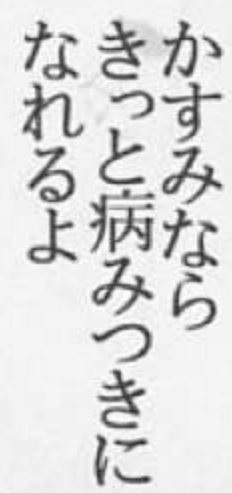 かすみなら
きっと病みつきに
なれるよ